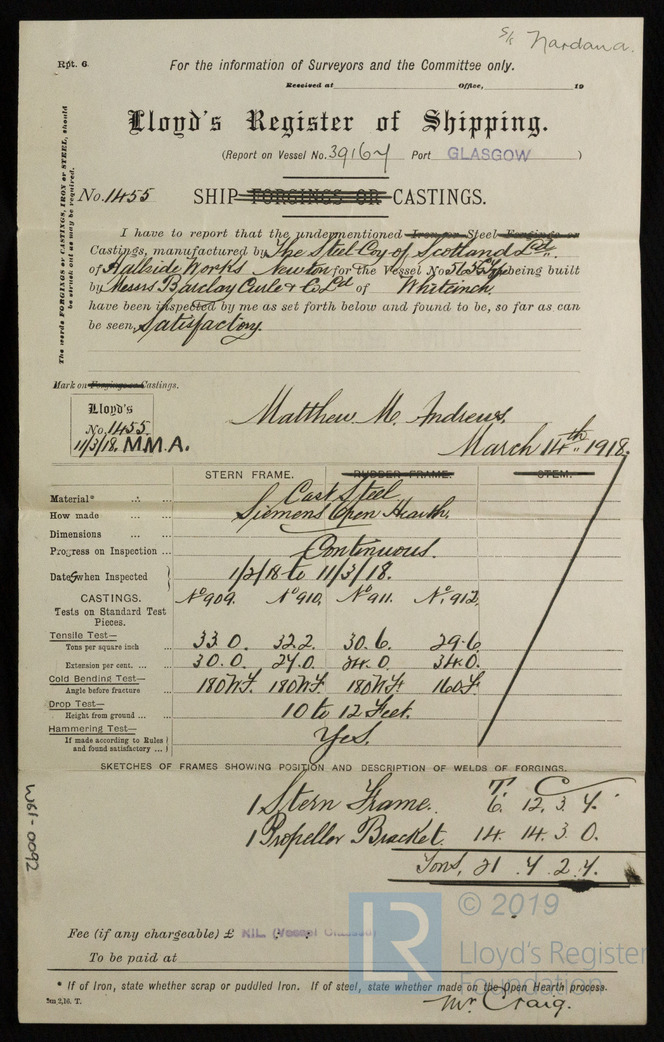 S/S Nardana.
Rpt. 6.
For the information of Surveyors and the Committee only.
Received at Office, 19
Lloyd's Register of Shipping.
(Report on Vessel No. 39167 Port GLASGOW )
No. 1455
SHIP FORGINGS OR CASTINGS.
The words FORGINGS or CASTINGS, IRON or STEEL, should be struck out as may be required.
I have to report that the undermentioned Iron or Steel Forgings or
Castings, manufactured by The Steel Coy of Scotland Ltd.
of Hallside Works Newton for the Vessel No. being built
by Messrs Barclay Curle & Co Ltd of Whiteinch
have been inspected by me as set forth below and found to be, so far as can
be seen, Satisfactory.
Mark on Forgings or Castings.
Lloyd's
No. 1455.
11/3/18. M.M.A.
Matthew M. Andrews,
March 14th 1918.
STERN FRAME. RUDDER FRAME. STEM.
Material* Cast Steel
How made Siemens Open Hearth.
Dimensions
Progress on Inspection Continuous.
Dates when Inspected 1/2/18 to 11/3/18.
CASTINGS. No 909. No 910. No 911. No 912.
Tests on Standard Test Pieces.
Tensile Test—
Tons per square inch 33.0. 32.2. 30.6. 29.6.
Extension per cent. 30.0. 27.0. 34.0. 34.0.
Cold Bending Test—
Angle before fracture 180 N.F. 180 N.F. 180 N.F. 160 F.
Drop Test—
Height from ground 10 to 12 Feet.
Hammering Test—
If made according to Rules and found satisfactory Yes.
SKETCHES OF FRAMES SHOWING POSITION AND DESCRIPTION OF WELDS OF FORGINGS.
T. C
1 Stern Frame. 6. 12. 3. 4.
1 Propellor Bracket. 14. 14. 3 0.
Tons, 21. 7. 2. 4.
W61-0092
© 2019
LR
Lloyd's Register
Foundation
Fee (if any chargeable) £ NIL (Vessel Classed)
To be paid at
* If of Iron, state whether scrap or puddled Iron. If of steel, state whether made on the Open Hearth process.
2m,2,16. T.
Mr. Craig.